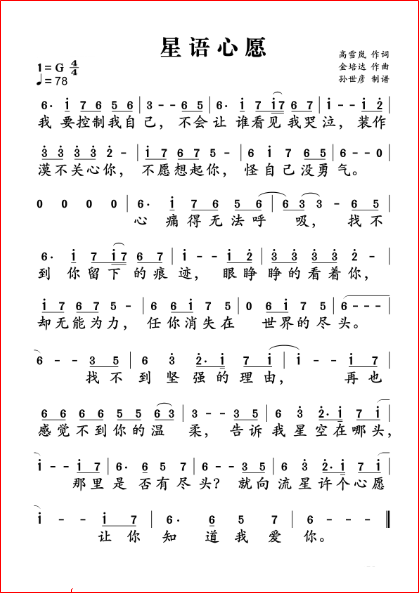 星语心愿
高雪岚 作词
1=G 4/4
金培达 作曲
♩=78
孙世彦 制谱
6· i 7 6 7 5 | 6 3 - - 6 5 | 6 i 7· i 1 7 | i - - i 2 |
我 要控制我自己，不会让 谁看见我哭泣，装作
3 3 3 3 2 - | i 7 6 7 5 - | 6· i 7 6 5 | 6 - - - |
漠不关心你，不愿想起你，怪自己没勇气。
0 0 0 0 | 6· 1 7 6 7 6 5 6 | 6 3 3 - 6 5 |
心 痛得无法呼 吸，找不
6· i 7 i 7 | i - - i 2 | 3 3 3 3 2 - |
到 你留下的痕迹，眼睁睁的看着你，
i 7 6 7 5 - | 6 2 i 7 i - | 0 6 i 7 5 | 6 - - - |
却无能为力，任你消失在 世界的尽头。
6 - - 3 5 | 6 3 2· i 7 i | i - - i 7 |
找不到坚强的理由，再也
6 6 6 6 5 5 6 3 | 3 - - 3 5 | 6 3 2· i 7 |
感觉不到你的温 柔，告诉我星空在哪头，
i - - i 7 | 6· 6 5 7 | 6 - - 3 5 | 6 3 2· i 7 |
那里是否有尽头？就向流星许个心愿
i - - i 7 | 6· 6 5 7 5 | 6 - - - |
让你知道我爱你。